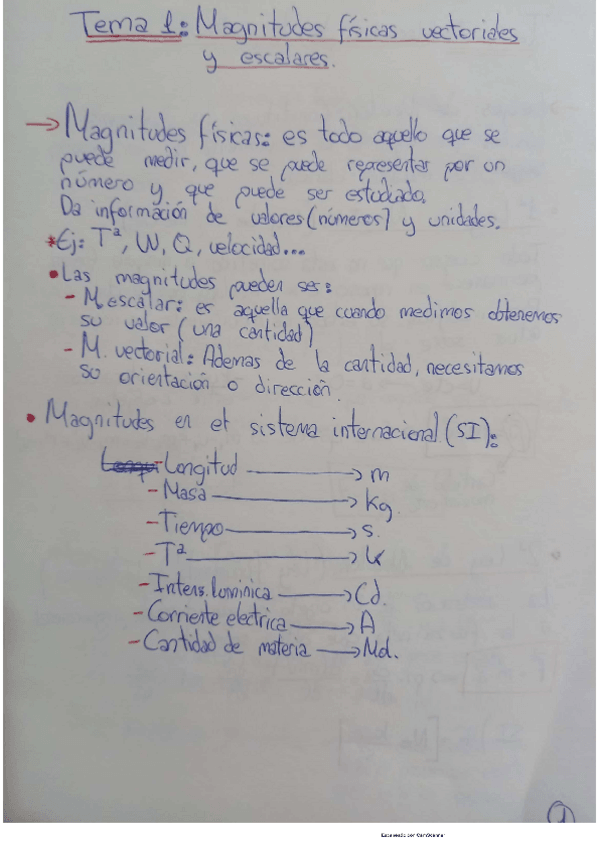 Tema 1: Magnitudes físicas vectoriales
y escalares.
→ Magnitudes físicas: es todo aquello que se
puede medir, que se puede representar por un
número y que puede ser estudiado.
Da información de valores (números) y unidades.
* Ej: Tª, W, Q, velocidad...
• Las magnitudes pueden ser:
- M.escalar: es aquella que cuando medimos obtenemos
su valor (una cantidad)
- M. vectorial: Ademas de la cantidad, necesitamos
su orientación o dirección.
• Magnitudes en el sistema internacional (SI):
- Longitud → m
- Masa → Kg.
- Tiempo → s.
- Tª → K
- Intens. lumínica → Cd.
- Corriente electrica → A
- Cantidad de materia → Mol.
1
Escaneado con CamScanner